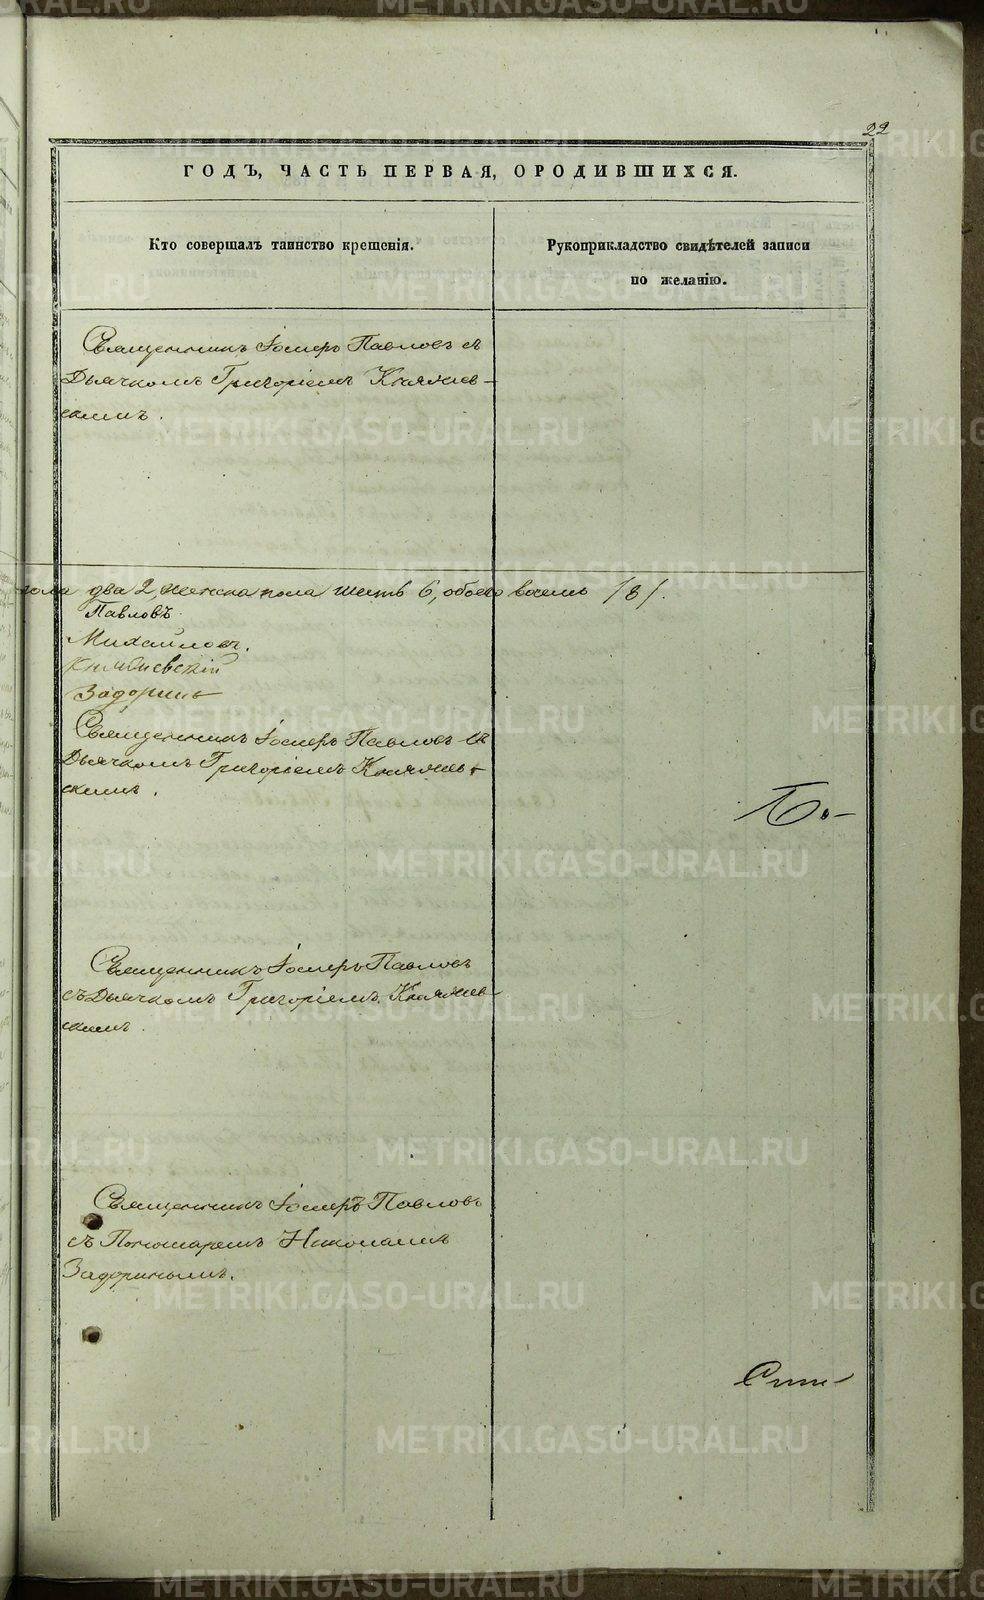 22
ГОДЪ, ЧАСТЬ ПЕРВАЯ, О РОДИВШИХСЯ.
Кто совершалъ таинство крещенія.
Рукоприкладство свидѣтелей записи
по желанію.
Священникъ Іосифъ Павловъ съ
Дьячкомъ Григоріемъ Княжев-
скимъ.
пола два 2, женска пола шесть 6, обоего восемь /8/.
Павловъ
Михайловъ.
Княжевскій
Задоринъ
Священникъ Іосифъ Павловъ съ
Дьячкомъ Григоріемъ Княжев-
скимъ.
По-
Священникъ Іосифъ Павловъ
съ Дьячкомъ Григоріемъ Княжев-
скимъ.
Священникъ Іосифъ Павловъ
съ Пономаремъ Николаемъ
Задоринымъ.
METRIKI.GASO-URAL.RU